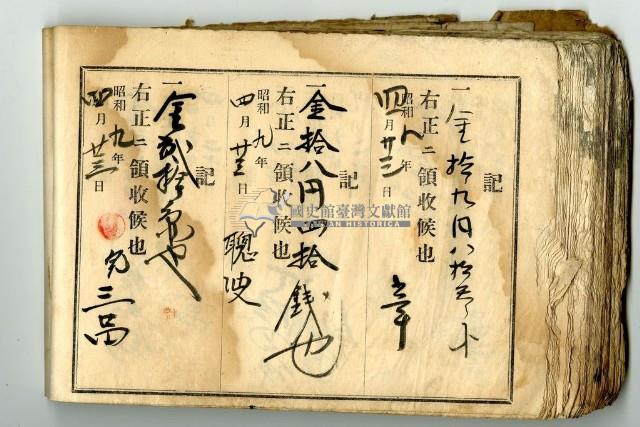 記
一金拾九円八拾
右正ニ領收候也
昭和九年四月廿三日
章
記
一金拾八円四拾錢也
右正ニ領收候也
昭和九年四月廿三日
聰
記
一金貳拾也
右正ニ領收候也
昭和九年四月廿三日
國史館臺灣文獻館
TAIWAN HISTORICA